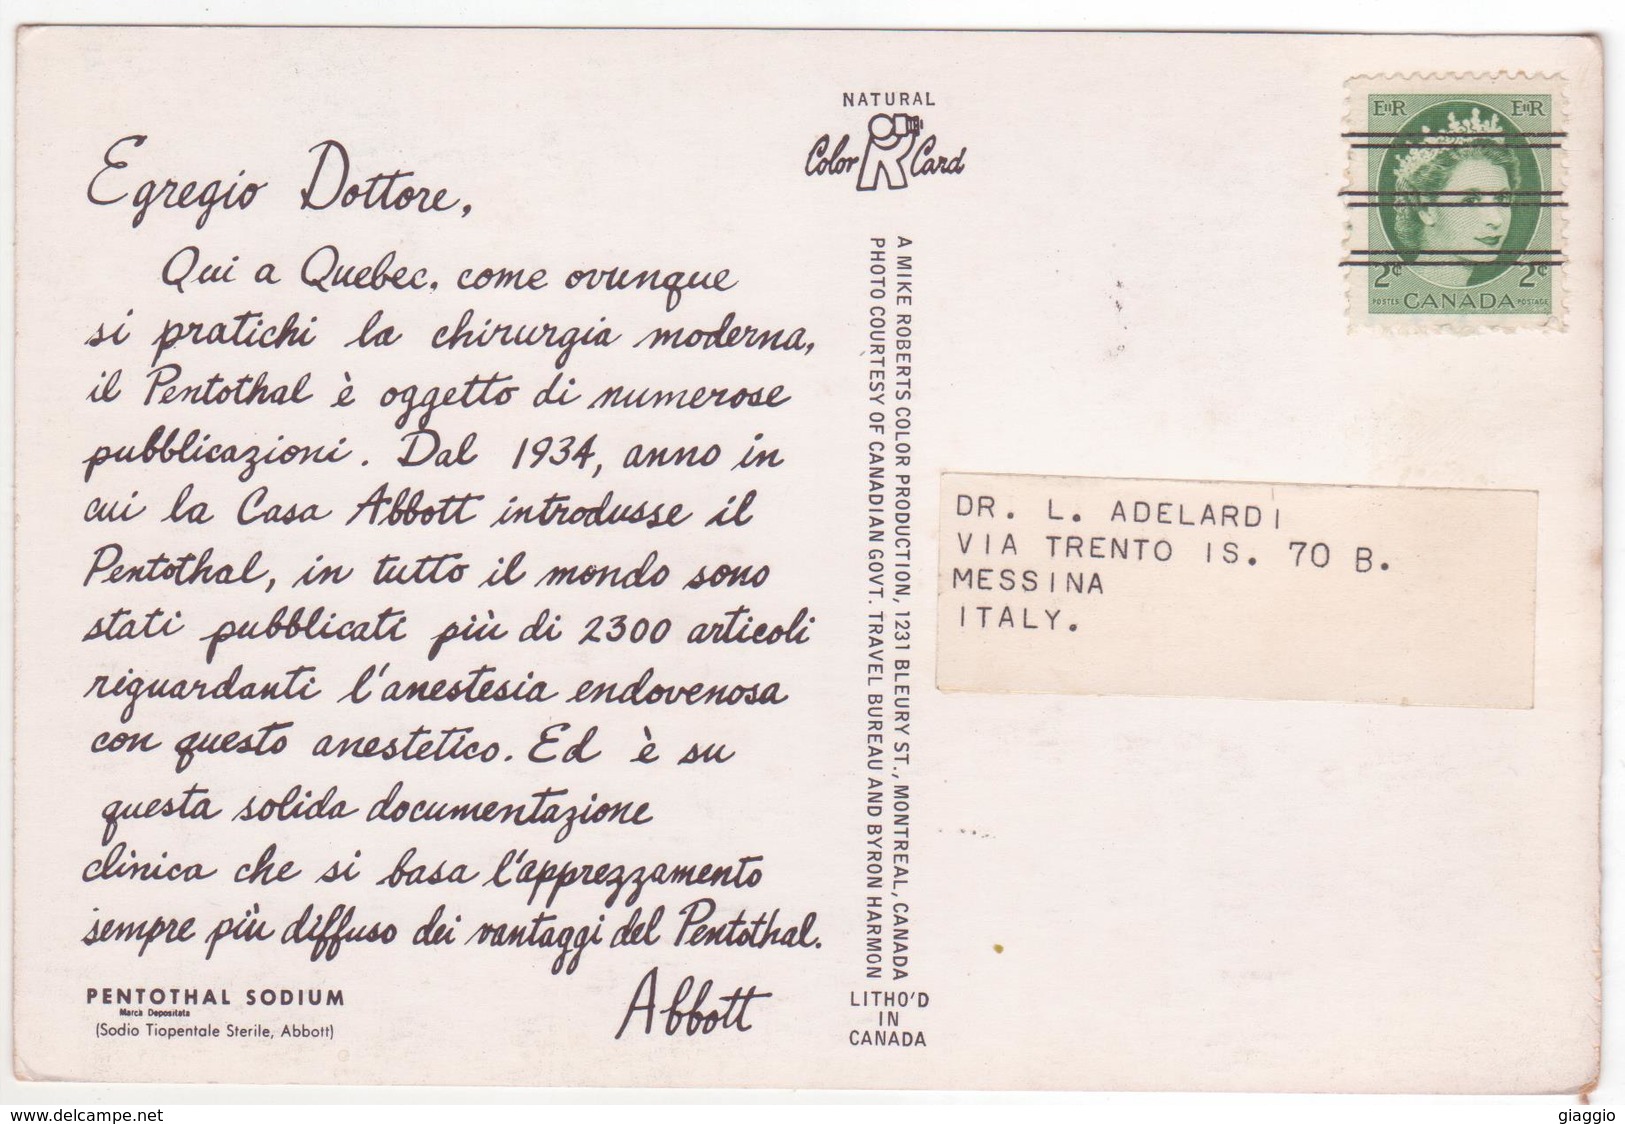 Egregio Dottore,
Qui a Quebec, come ovunque
si pratichi la chirurgia moderna,
il Pentothal è oggetto di numerose
pubblicazioni. Dal 1934, anno in
cui la Casa Abbott introdusse il
Pentothal, in tutto il mondo sono
stati pubblicati più di 2300 articoli
riguardanti l'anestesia endovenosa
con questo anestetico. Ed è su
questa solida documentazione
clinica che si basa l'apprezzamento
sempre più diffuso dei vantaggi del Pentothal.
Abbott
PENTOTHAL SODIUM
Marca Depositata
(Sodio Tiopentale Sterile, Abbott)
NATURAL
Color R Card
A MIKE ROBERTS COLOR PRODUCTION, 1231 BLEURY ST., MONTREAL, CANADA
PHOTO COURTESY OF CANADIAN GOVT. TRAVEL BUREAU AND BYRON HARMON
LITHO'D
IN
CANADA
EIIR EIIR
2¢ 2¢
POSTES CANADA POSTAGE
DR. L. ADELARDI
VIA TRENTO IS. 70 B.
MESSINA
ITALY.
www.delcampe.net
giaggio